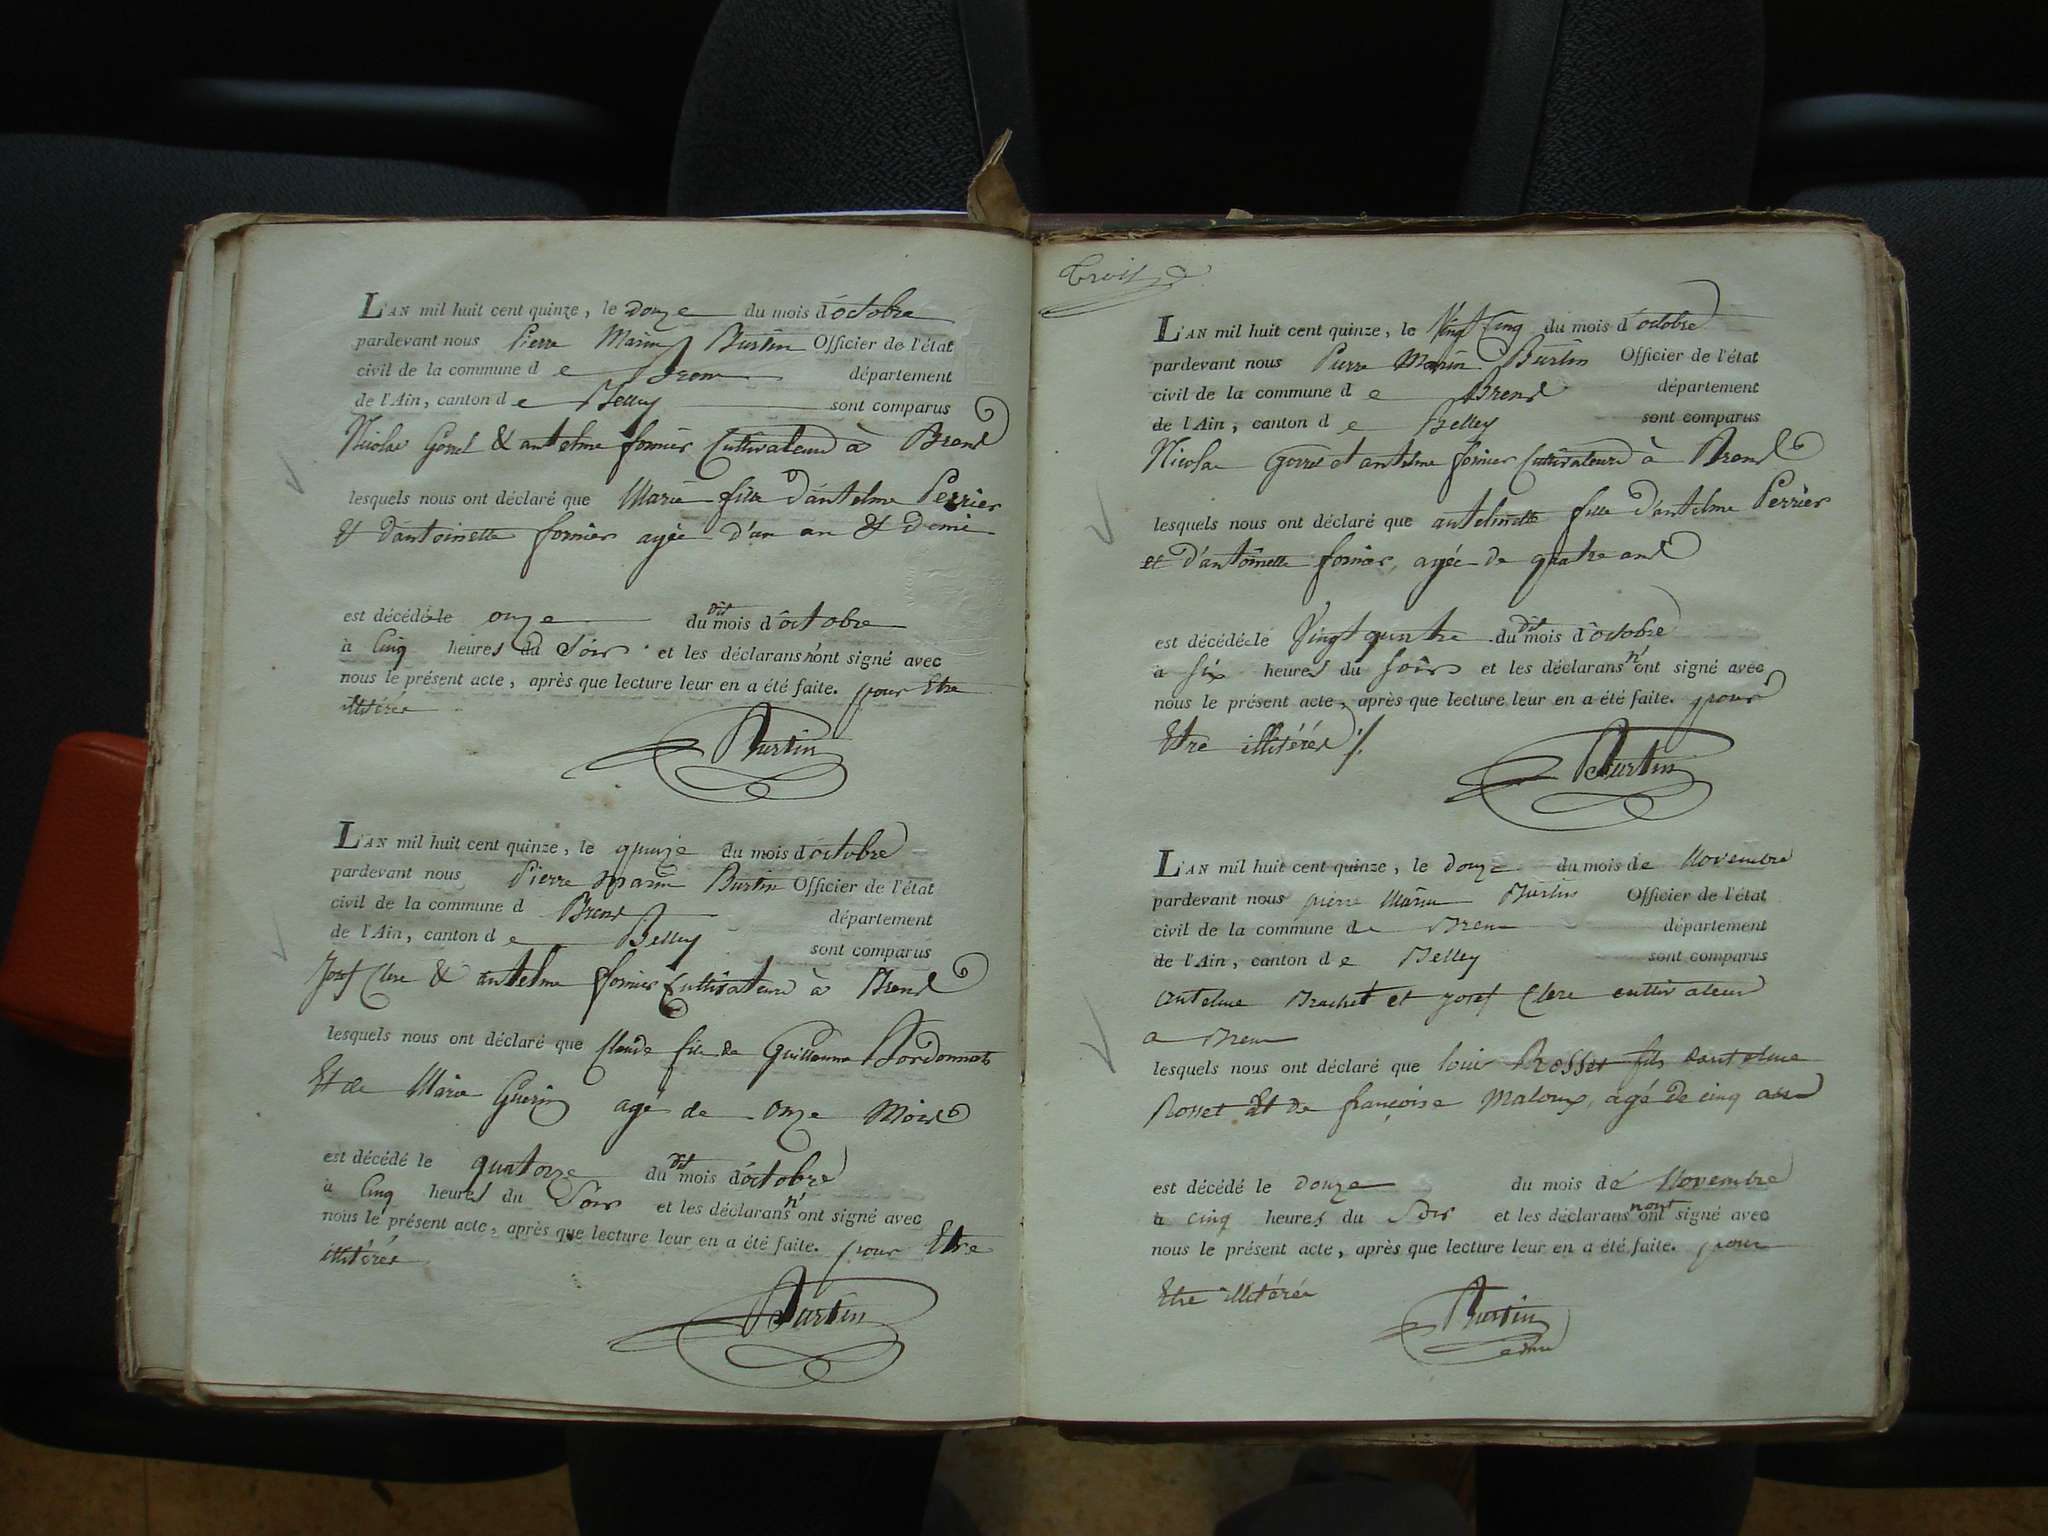 L'AN mil huit cent quinze, le douze du mois d'octobre
pardevant nous Pierre Marin Burtin Officier de l'état
civil de la commune de Brens département
de l'Ain, canton de Belley sont comparus
Nicolas Gorrel & antelme fornier Cultivateurs à Brens
lesquels nous ont déclaré que Marie fille d'antelme Perrier
& d'antoinette fornier agée d'un an & demi
est décédé le onze du dit mois d'octobre
à Cinq heures du Soir et les déclarans n'ont signé avec
nous le présent acte, après que lecture leur en a été faite. pour Etre
illitérés
Burtin
L'AN mil huit cent quinze, le quinze du mois d'octobre
pardevant nous Pierre marin Burtin Officier de l'état
civil de la commune d Brens département
de l'Ain, canton de Belley sont comparus
Josef Clerc & antelme fornier Cultivateurs à Brens
lesquels nous ont déclaré que Claude fils de Guillaume
Et de Marie Guerin agé de onze Mois
est décédé le quatorze du dit mois d'octobre
à Cinq heures du Soir et les déclarans n'ont signé avec
nous le présent acte, après que lecture leur en a été faite. pour Etre
illitérés
Burtin
L'AN mil huit cent quinze, le Vingt Cinq du mois d'octobre
pardevant nous Pierre Marin Burtin Officier de l'état
civil de la commune de Brens département
de l'Ain, canton de Belley sont comparus
Nicolas Gorrel et antelme fornier Cultivateurs à Brens
lesquels nous ont déclaré que antelmette fille d'antelme Perrier
et d'antoinette fornier, agée de quatre ans
est décédé le Vingt quatre du dit mois d'octobre
à Six heures du Soir et les déclarans n'ont signé avec
nous le présent acte, après que lecture leur en a été faite. pour
Etre illitérés
Burtin
L'AN mil huit cent quinze, le douze du mois de Novembre
pardevant nous pierre Marin Burtin Officier de l'état
civil de la commune de Bren département
de l'Ain, canton de Belley sont comparus
antelme Brachet et josef Clerc cultivateurs
a Bren
lesquels nous ont déclaré que louis Rosset fils dantelme
Rosset Et de françoise Maloux, agé de cinq ans
est décédé le douze du mois de Novembre
à cinq heures du Soir et les déclarans nont signé avec
nous le présent acte, après que lecture leur en a été faite. pour
Etre illitérés
Burtin